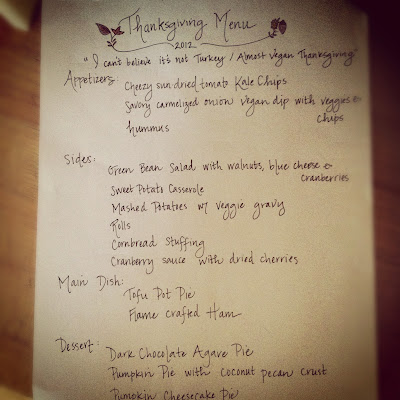 Thanksgiving Menu
2012
"I can't believe it's not Turkey / Almost vegan Thanksgiving"
Appetizers: Cheezy sun dried tomato Kale Chips
Savory carmelized onion vegan dip with veggies &
chips
hummus
Sides:
Green Bean Salad with walnuts, blue cheese &
cranberries
Sweet Potato Casserole
Mashed Potatoes w/ veggie gravy
Rolls
Cornbread Stuffing
Cranberry sauce with dried cherries
Main Dish:
Tofu Pot Pie
Flame Crafted Ham
Dessert:
Dark Chocolate Agave Pie
Pumpkin Pie with coconut pecan crust
Pumpkin Cheesecake Pie